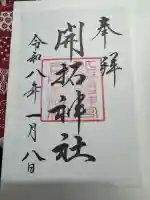 奉拜
開拓神社
令和八年一月八日